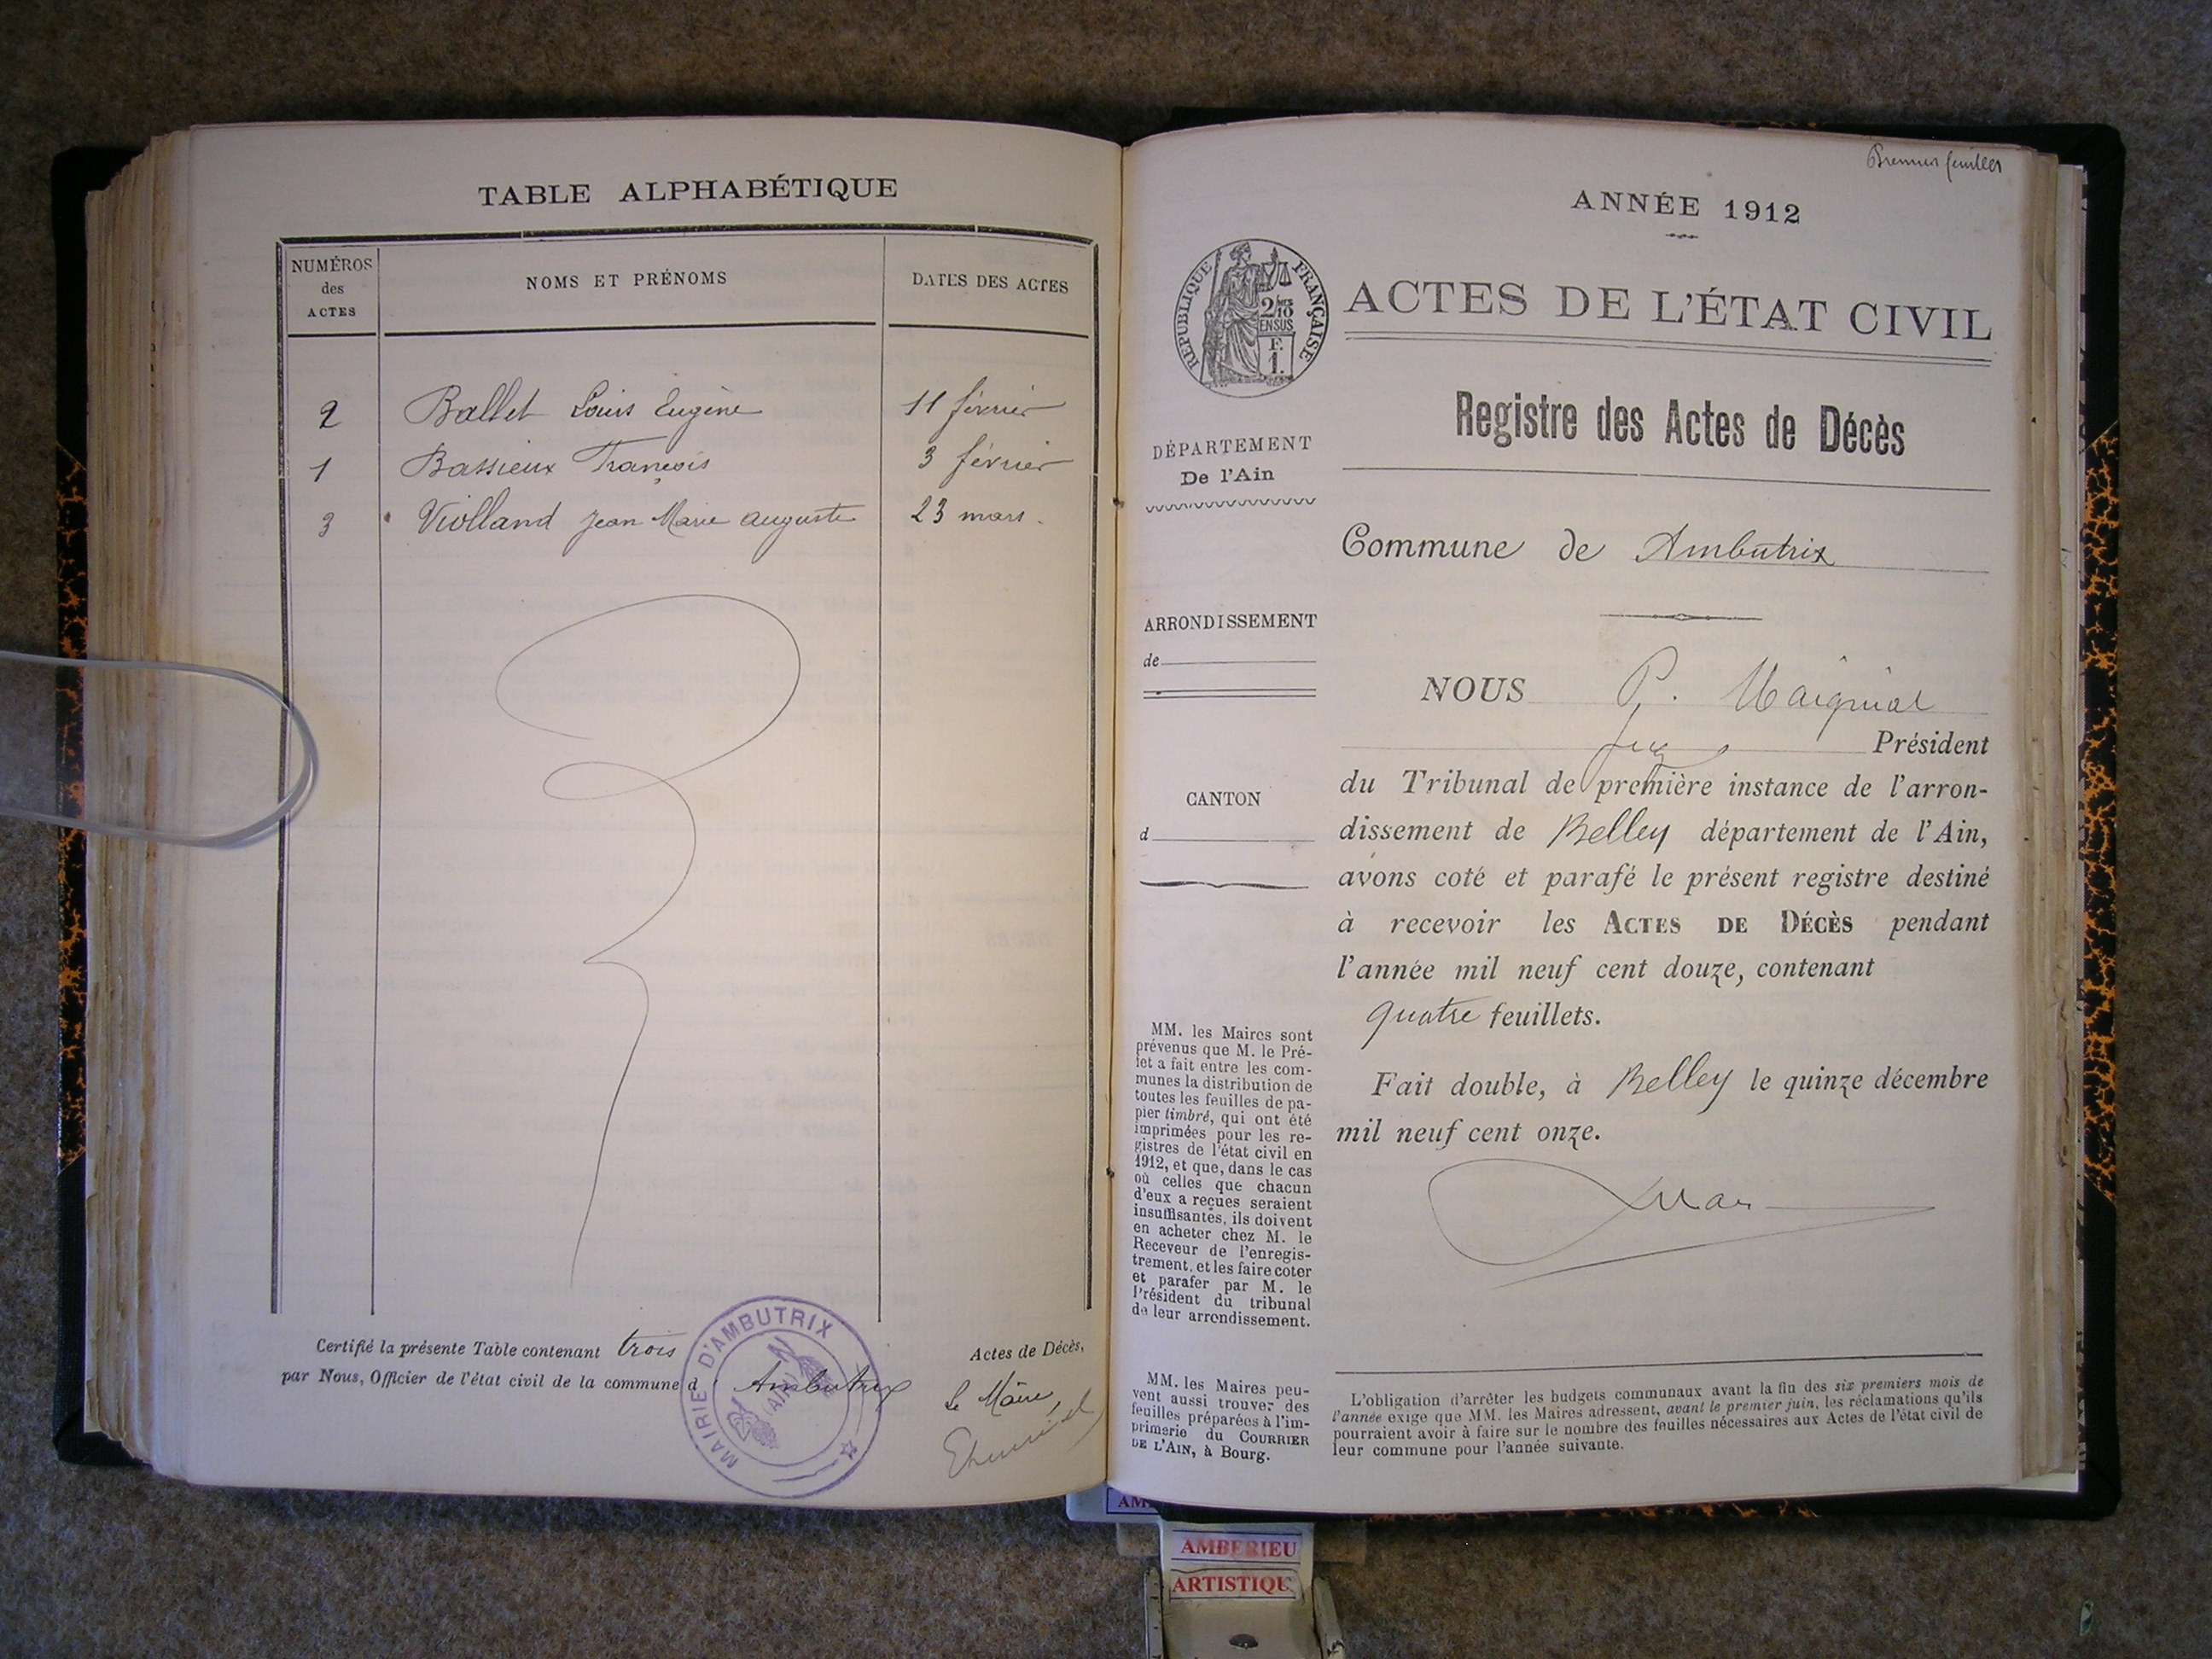 TABLE ALPHABÉTIQUE
NUMÉROS
des
ACTES
NOMS ET PRÉNOMS
DATES DES ACTES
2 Ballet Louis Eugène 11 février
1 Bassieux François 3 février
3 Violland Jean Marie Auguste 23 mars
Certifié la présente Table contenant trois Actes de Décès,
par Nous, Officier de l'état civil de la commune d Ambutrix
Le Maire,
MAIRIE D'AMBUTRIX
(AIN)
Premier feuillet
ANNÉE 1912
RÉPUBLIQUE FRANÇAISE
2/10
EN SUS
F.
1.
ACTES DE L'ÉTAT CIVIL
Registre des Actes de Décès
DÉPARTEMENT
De l'Ain
Commune de Ambutrix
ARRONDISSEMENT
de
CANTON
d
NOUS P.
Président
du Tribunal de première instance de l'arron-
dissement de Belley département de l'Ain,
avons coté et parafé le présent registre destiné
à recevoir les ACTES DE DÉCÈS pendant
l'année mil neuf cent douze, contenant
quatre feuillets.
Fait double, à Belley le quinze décembre
mil neuf cent onze.
MM. les Maires sont
prévenus que M. le Pré-
fet a fait entre les com-
munes la distribution de
toutes les feuilles de pa-
pier timbré, qui ont été
imprimées pour les re-
gistres de l'état civil en
1912, et que, dans le cas
où celles que chacun
d'eux a reçues seraient
insuffisantes, ils doivent
en acheter chez M. le
Receveur de l'enregis-
trement, et les faire coter
et parafer par M. le
Président du tribunal
de leur arrondissement.
MM. les Maires peu-
vent aussi trouver des
feuilles préparées à l'im-
primerie du COURRIER
DE L'AIN, à Bourg.
L'obligation d'arrêter les budgets communaux avant la fin des six premiers mois de
l'année exige que MM. les Maires adressent, avant le premier juin, les réclamations qu'ils
pourraient avoir à faire sur le nombre des feuilles nécessaires aux Actes de l'état civil de
leur commune pour l'année suivante.
AM
AMBERIEU
ARTISTIQU